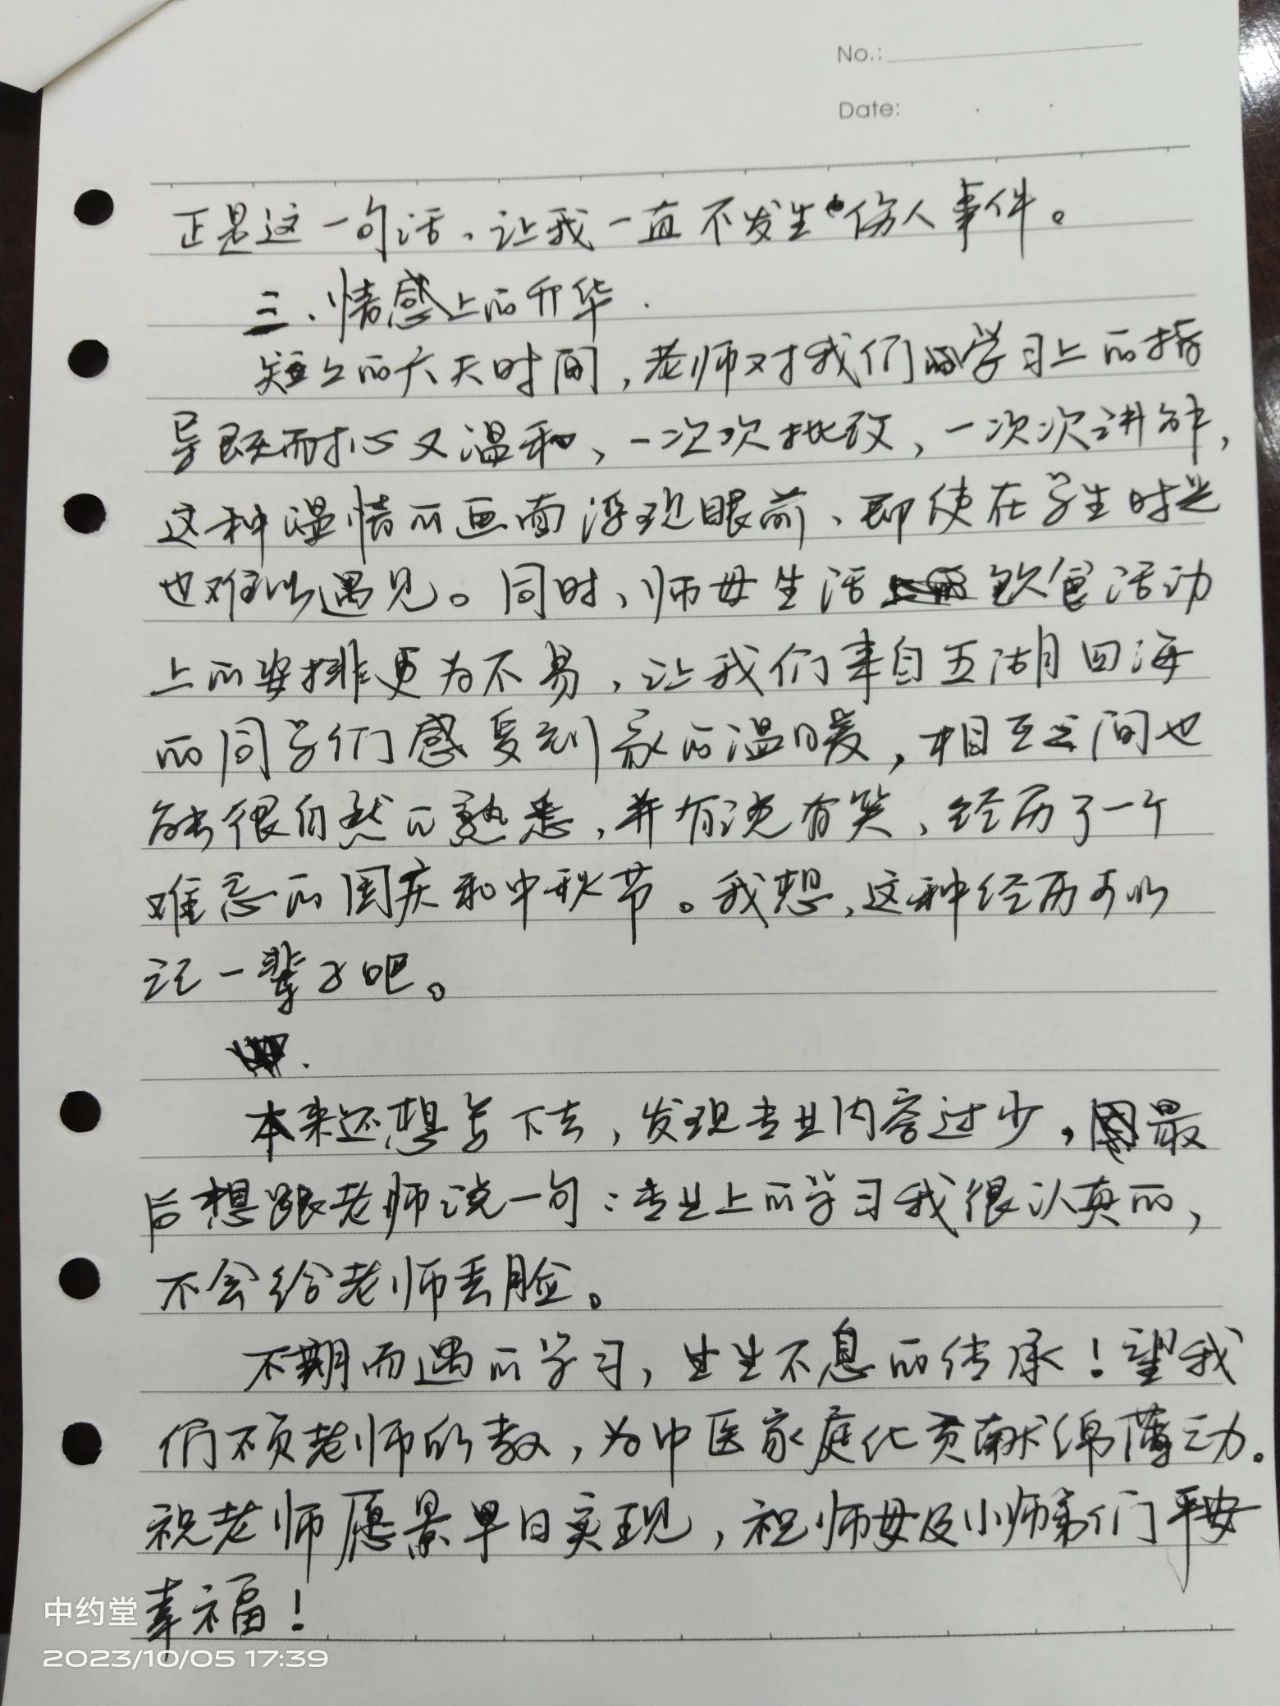 No.:
Date:
正是这一句话、让我一直不发生伤人事件。
三、情感上的升华.
短短的六天时间，老师对我们的学习上的指
导既耐心又温和、一次次批改，一次次讲解，
这种温情的画面浮现眼前、即使在学生时光
也难以遇见。同时、师母生活饮食活动
上的安排更为不易，让我们来自五湖四海
的同学们感受到家的温暖，相互之间也
能很自然的熟悉，并有说有笑、经历了一个
难忘的国庆和中秋节。我想，这种经历可以
记一辈子吧。
本来还想写下去，发现专业内容过少，最
后想跟老师说一句：专业上的学习我很认真的，
不会给老师丢脸。
不期而遇的学习，生生不息的传承！望我
们不负老师的教，为中医家庭化贡献绵薄之力。
祝老师愿景早日实现，祝师母及小师弟们平安
幸福！
中约堂
2023/10/05 17:39